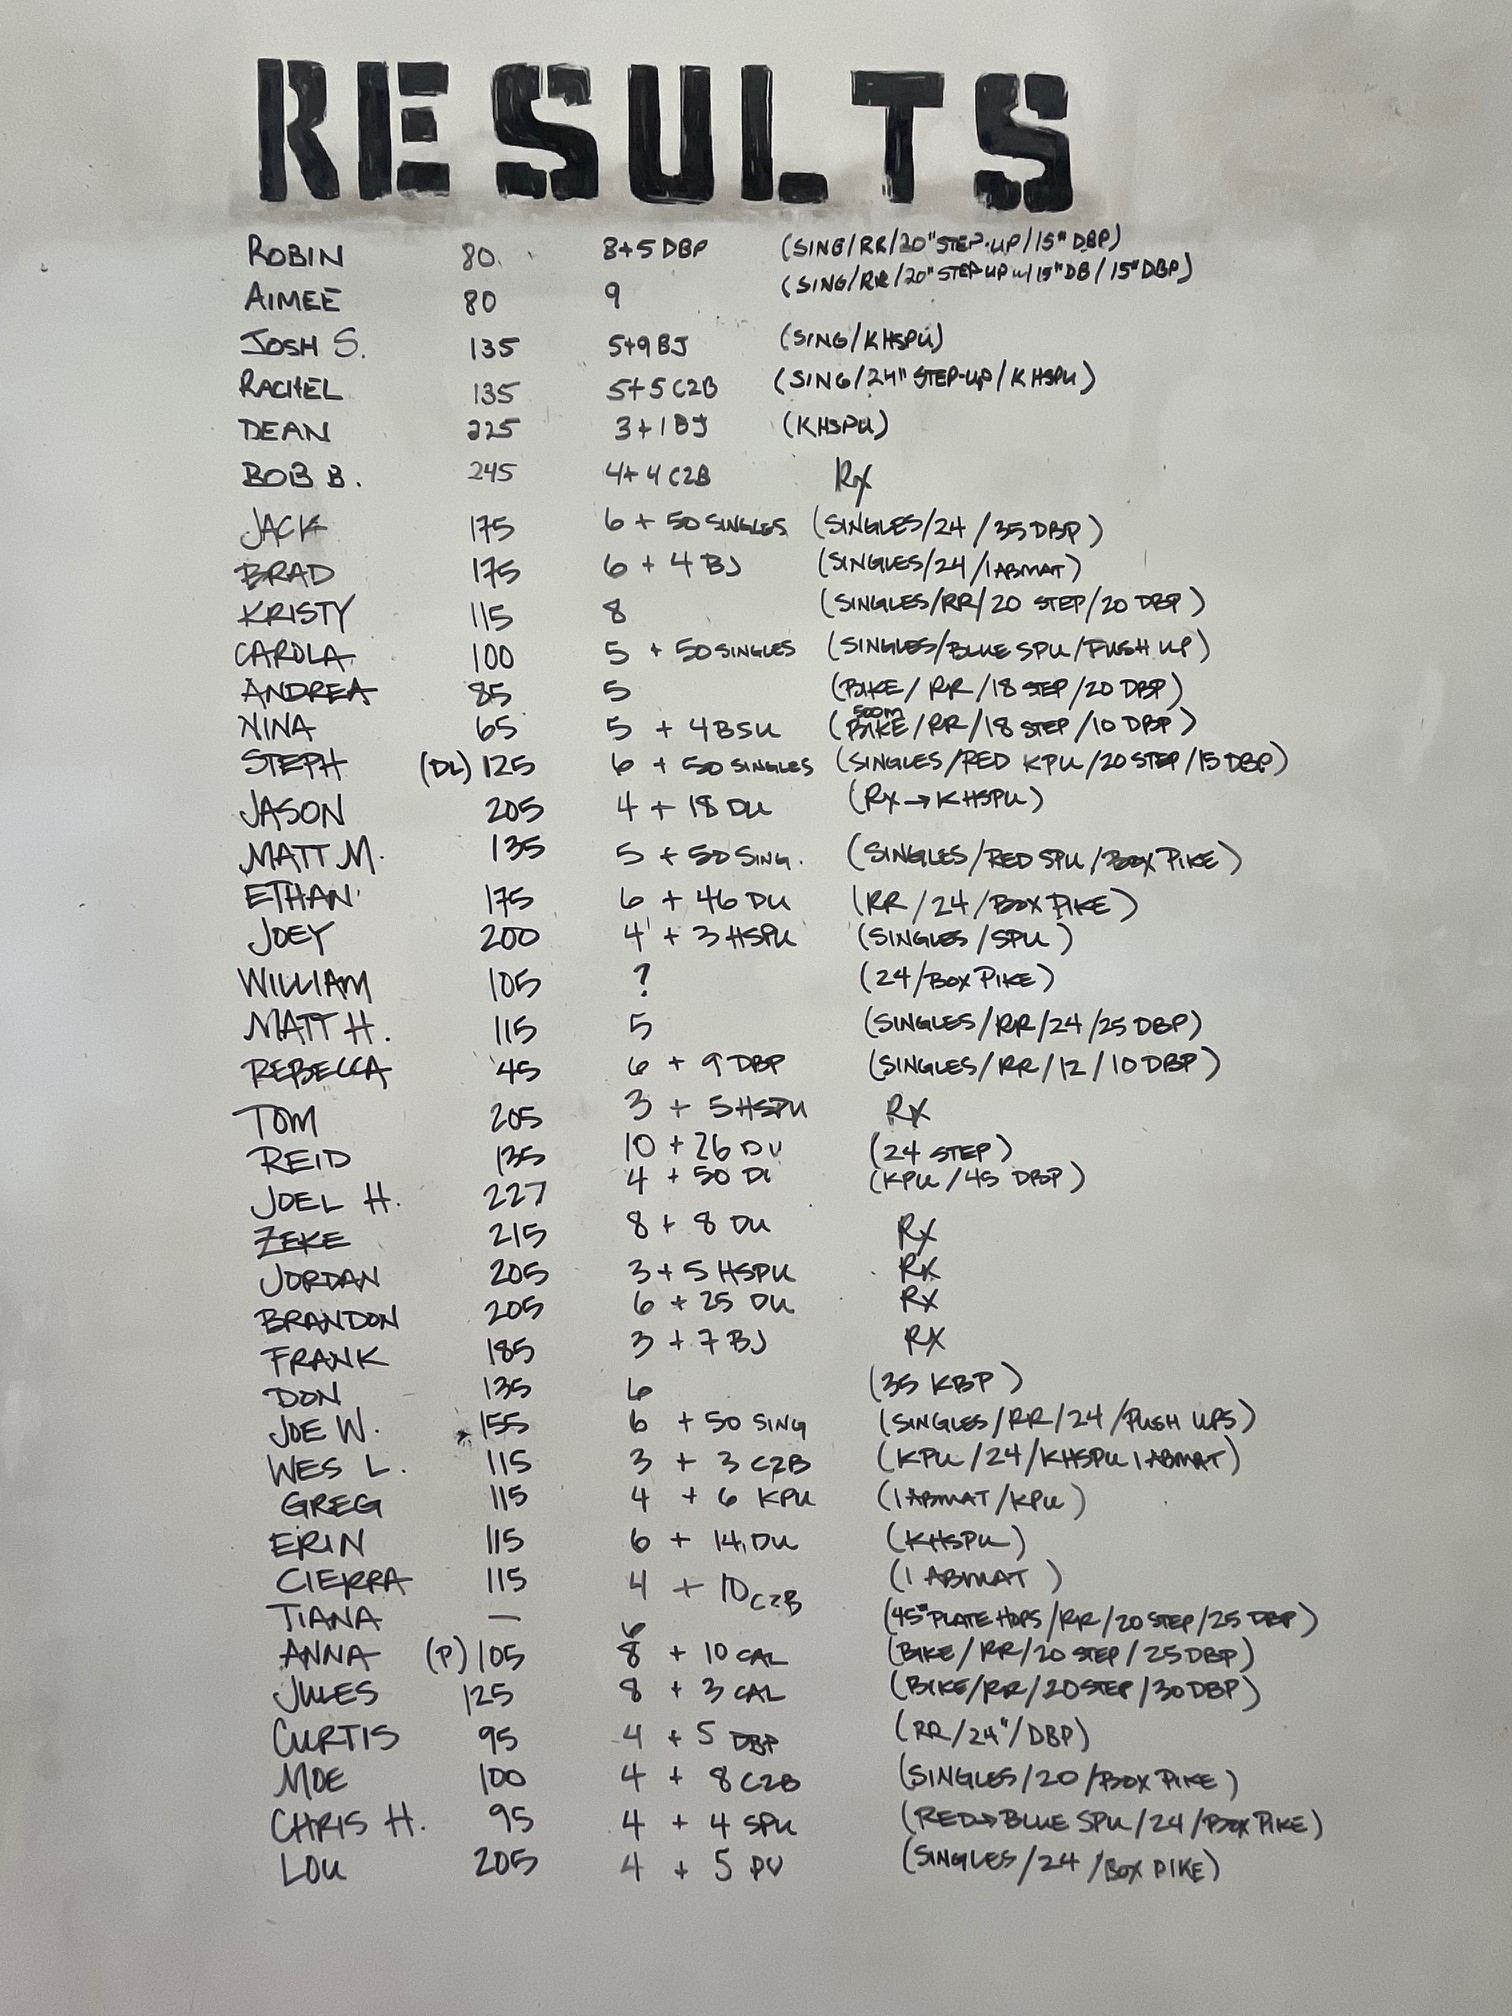 RESULTS
ROBIN 80 8+5 DBP (SING/RR/20" STEP-UP/15# DBP)
AIMEE 80 9 (SING/RR/20" STEP-UP w/15# DB/15# DBP)
JOSH S. 135 5+9 BJ (SING/KHSPU)
RACHEL 135 5+5 C2B (SING/24" STEP-UP/KHSPU)
DEAN 225 3+1 BJ (KHSPU)
BOB B. 245 4+4 C2B Rx
JACK 175 6 + 50 SINGLES (SINGLES/24/35 DBP)
BRAD 175 6 + 4 BJ (SINGLES/24/1 ABMAT)
KRISTY 115 8 (SINGLES/RR/20 STEP/20 DBP)
CAROLA 100 5 + 50 SINGLES (SINGLES/BLUE SPU/PUSH UP)
ANDREA 85 5 (BIKE/RR/18 STEP/20 DBP)
NINA 65 5 + 4 BSU (500m BIKE/RR/18 STEP/10 DBP)
STEPH (DL) 125 6 + 50 SINGLES (SINGLES/RED KPU/20 STEP/15 DBP)
JASON 205 4 + 18 DU (Rx → KHSPU)
MATT M. 135 5 + 50 SING. (SINGLES/RED SPU/BOX PIKE)
ETHAN 175 6 + 46 DU (RR/24/BOX PIKE)
JOEY 200 4 + 3 HSPU (SINGLES/SPU)
WILLIAM 105 ? (24/BOX PIKE)
MATT H. 115 5 (SINGLES/RR/24/25 DBP)
REBECCA 45 6 + 9 DBP (SINGLES/RR/12/10 DBP)
TOM 205 3 + 5 HSPU Rx
REID 135 10 + 26 DU (24 STEP)
JOEL H. 227 4 + 50 DU (KPU/45 DBP)
ZEKE 215 8 + 8 DU Rx
JORDAN 205 3 + 5 HSPU Rx
BRANDON 205 6 + 25 DU Rx
FRANK 185 3 + 7 BJ Rx
DON 135 6 (35 KBP)
JOE W. 155 6 + 50 SING (SINGLES/RR/24/PUSH UPS)
WES L. 115 3 + 3 C2B (KPU/24/KHSPU 1 ABMAT)
GREG 115 4 + 6 KPU (1 ABMAT/KPU)
ERIN 115 6 + 14 DU (KHSPU)
CIERRA 115 4 + 10 C2B (1 ABMAT)
TIANA — 6 (45# PLATE HOPS/RR/20 STEP/25 DBP)
ANNA (P) 105 8 + 10 CAL (BIKE/RR/20 STEP/25 DBP)
JULES 125 8 + 3 CAL (BIKE/RR/20 STEP/30 DBP)
CURTIS 95 4 + 5 DBP (RR/24"/DBP)
MOE 100 4 + 8 C2B (SINGLES/20/BOX PIKE)
CHRIS H. 95 4 + 4 SPU (RED→BLUE SPU/24/BOX PIKE)
LOU 205 4 + 5 PU (SINGLES/24/BOX PIKE)